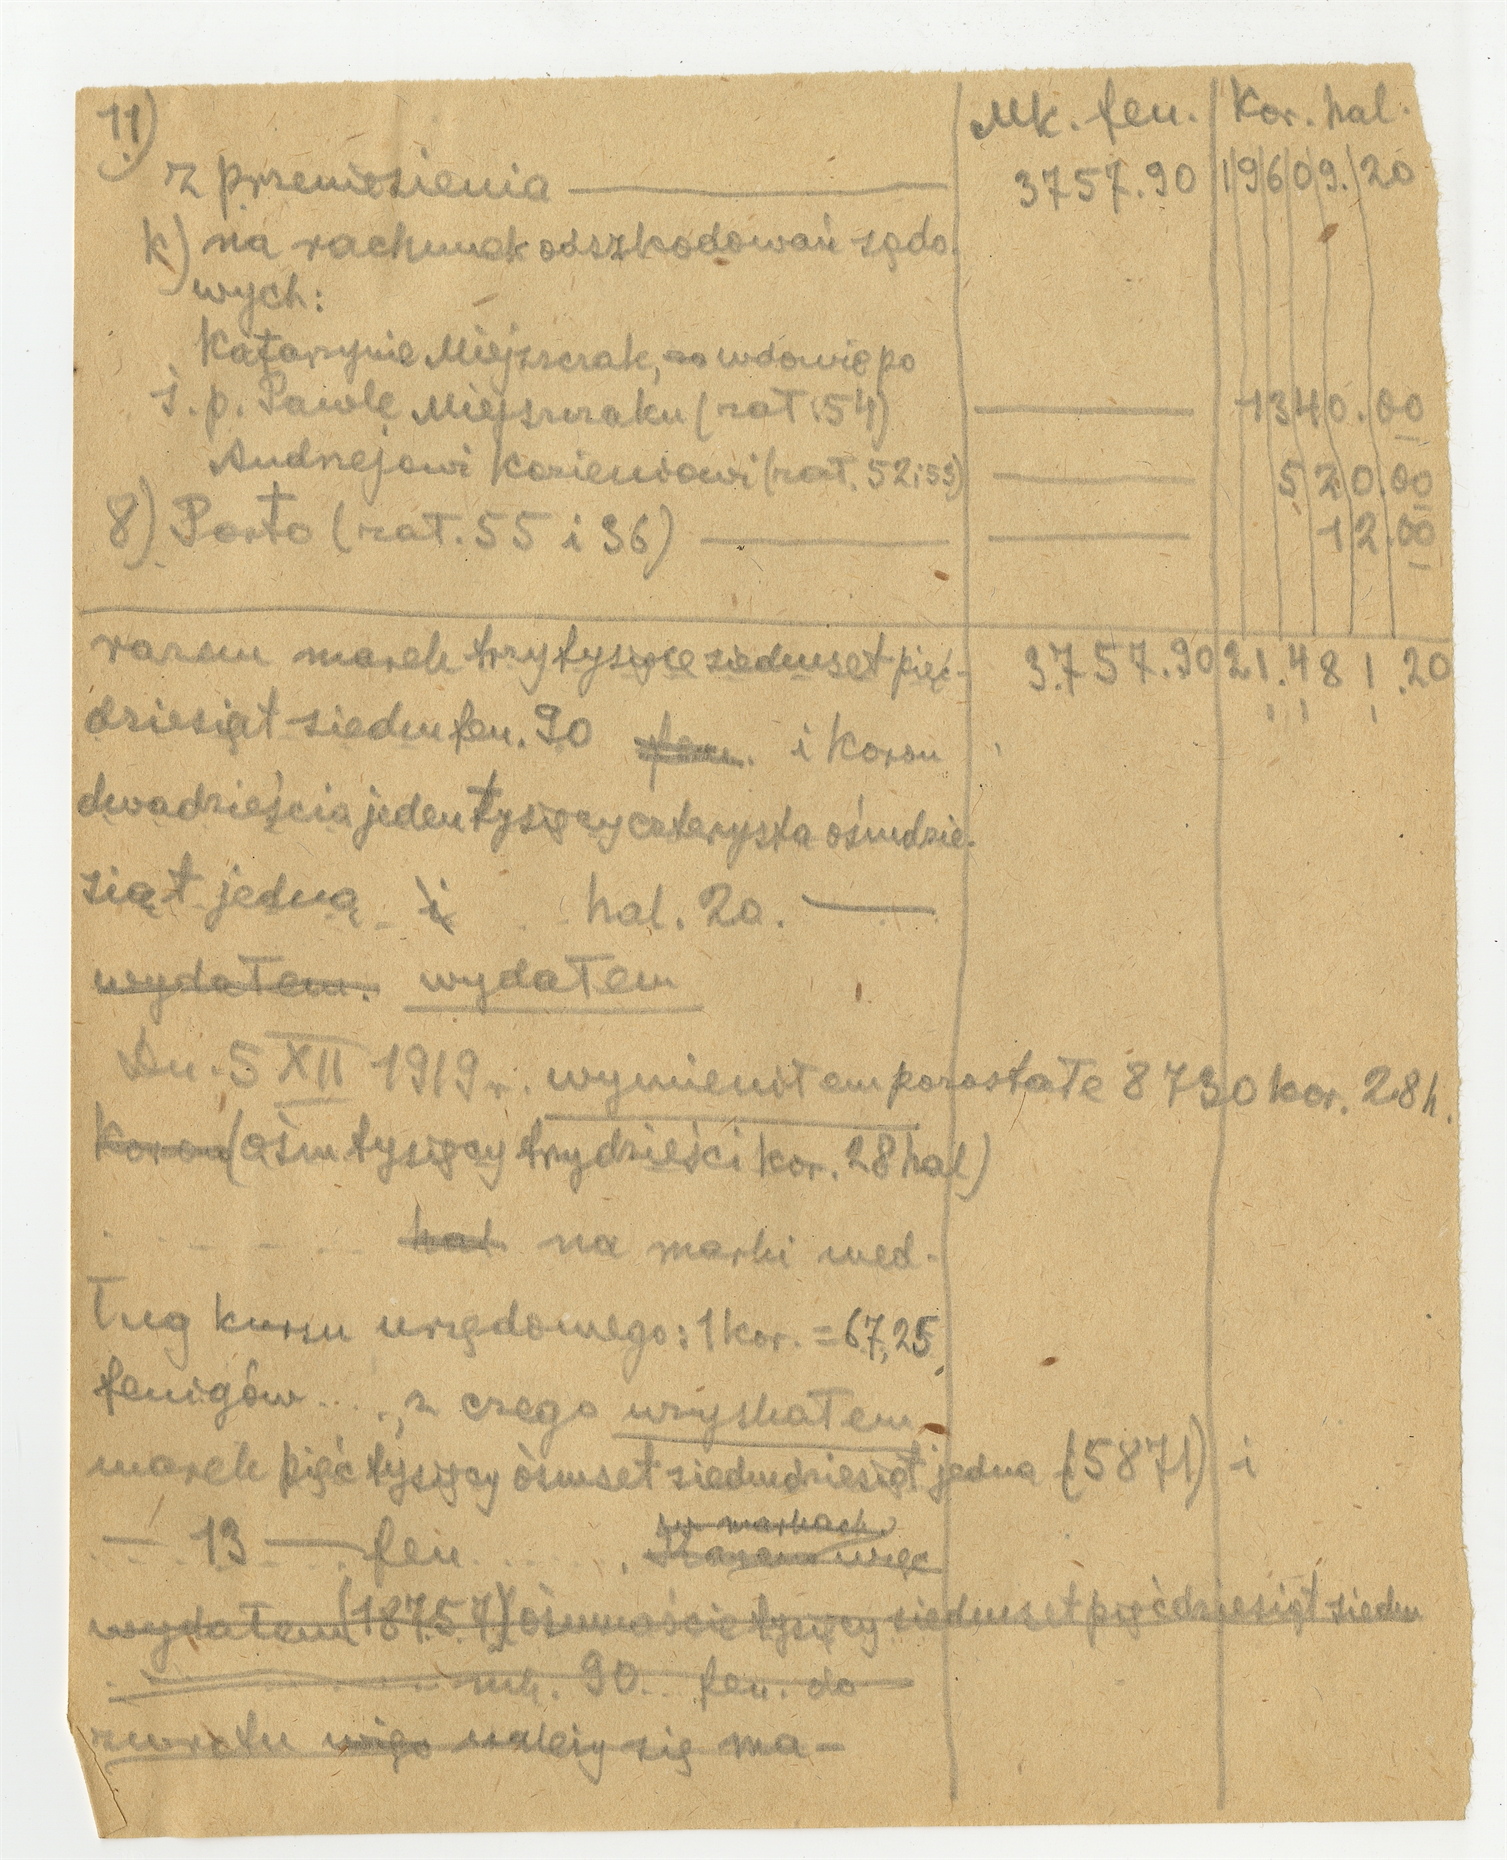 11) Mk. fen. Kor. hal.
z przeniesienia 3757.90 19609.20
k) na rachunek odszkodowań sądo-
wych:
Katarzynie Miejszczak, wdowie po
ś. p. Pawle Miejszczaku (zał. 54) 1340.00
Andrzejowi Kozieniowi (zał. 52 i 53) 520.00
8) Porto (zał. 55 i 36) 12.00
razem marek trzy tysiące siedmset pięć- 3757.90 21.481.20
dziesiąt siedm fen. 90 fen. i koron
dwadzieścia jeden tysięcy czterysta ośmdzie-
siąt jedną i hal. 20.
wydałem. wydałem
Dn. 5 XII 1919 r. wymieniłem pozostałe 8730 kor. 28 h.
Koron (ośm tysięcy trzydzieści kor. 28 hal)
hal na marki wed-
ług kursu urzędowego: 1 kor. = 67,25
fenigów ..., z czego uzyskałem
marek pięć tysięcy ośmset siedmdziesiąt jedna (5871) i
— 13 — fen
w markach
Razem więc
wydałem (18757) ośmnaście tysięcy siedmset pięćdziesiąt siedm
mk. 90 fen. do
zwrotu więc należy się ma-